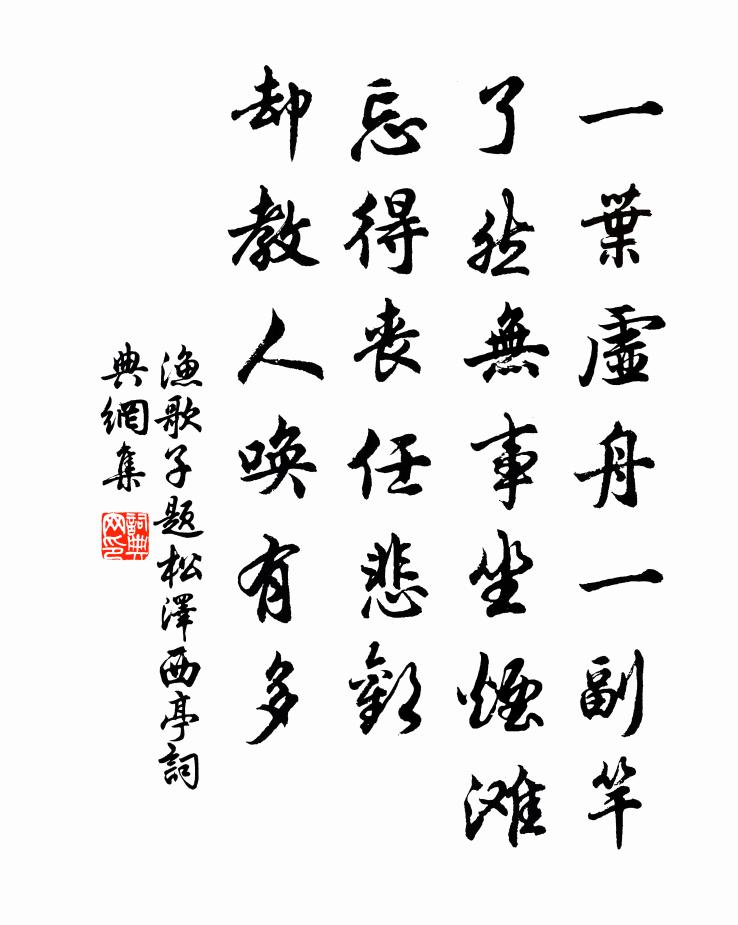 一葉虛舟一副竿
了然無事坐煙滩
忘得喪任悲歡
却教人喚有多
漁歌子題松澤西亭詞
典網集
詞典
网印